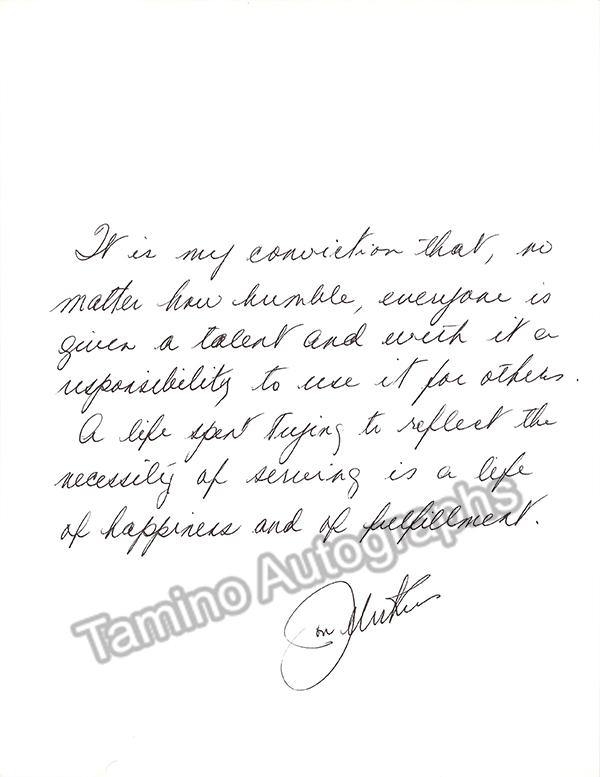 It is my conviction that, no
matter how humble, everyone is
given a talent and with it a
responsibility to use it for others.
A life spent trying to reflect the
necessity of serving is a life
of happiness and of fulfillment.
Jon Vickers
Tamino Autographs